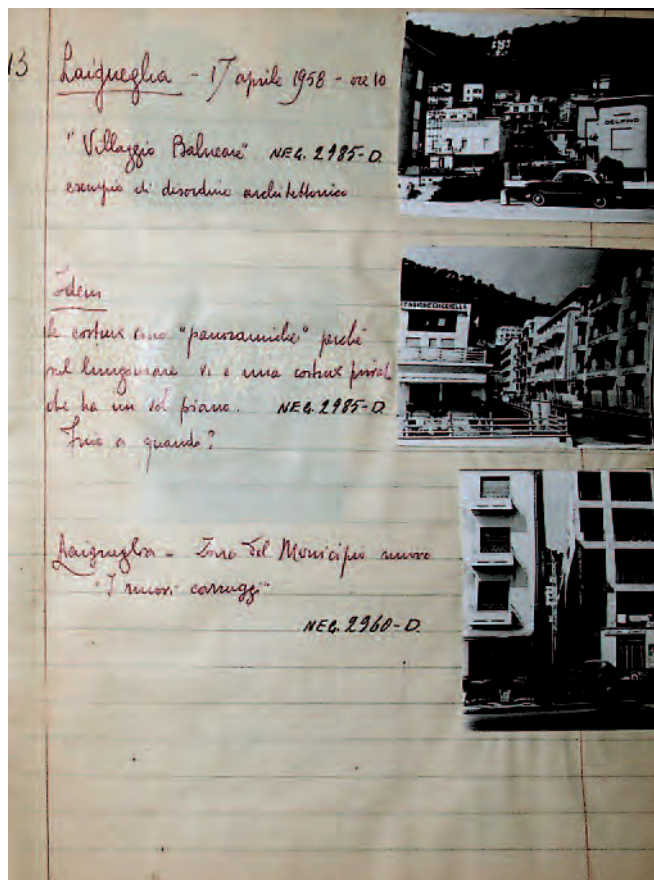 13
Laigueglia - 17 aprile 1958 - ore 10
"Villaggio Balneare" NEG. 2985-D.
esempio di disordine architettonico
DELFINO
Idem
le costruz. sono "panoramiche" perché
sul lungomare vi è una costruz.
che ha un sol piano. NEG. 2985-D.
Fino a quando?
Laigueglia - Zona del Municipio nuovo
"I nuovi carruggi"
NEG. 2960-D.